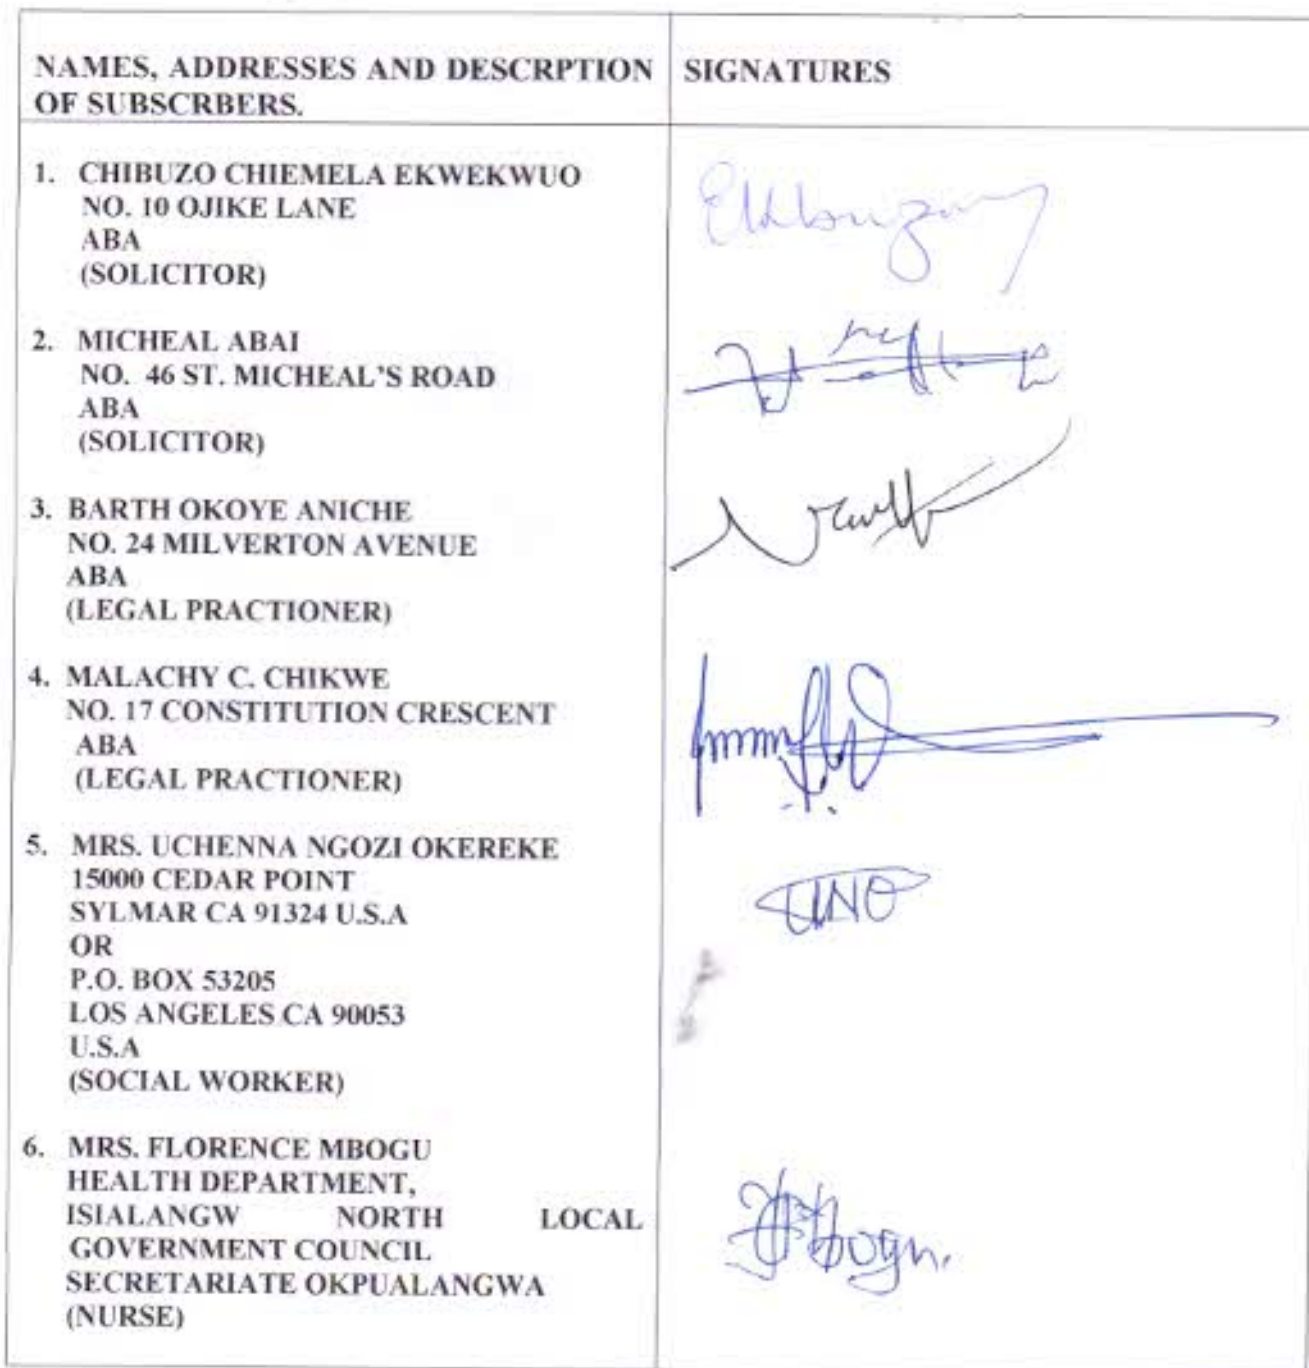 NAMES, ADDRESSES AND DESCRPTION OF SUBSCRBERS.
SIGNATURES
1. CHIBUZO CHIEMELA EKWEKWUO
NO. 10 OJIKE LANE
ABA
(SOLICITOR)
2. MICHEAL ABAI
NO. 46 ST. MICHEAL'S ROAD
ABA
(SOLICITOR)
3. BARTH OKOYE ANICHE
NO. 24 MILVERTON AVENUE
ABA
(LEGAL PRACTIONER)
4. MALACHY C. CHIKWE
NO. 17 CONSTITUTION CRESCENT
ABA
(LEGAL PRACTIONER)
5. MRS. UCHENNA NGOZI OKEREKE
15000 CEDAR POINT
SYLMAR CA 91324 U.S.A
OR
P.O. BOX 53205
LOS ANGELES CA 90053
U.S.A
(SOCIAL WORKER)
UNO
6. MRS. FLORENCE MBOGU
HEALTH DEPARTMENT,
ISIALANGW NORTH LOCAL
GOVERNMENT COUNCIL
SECRETARIATE OKPUALANGWA
(NURSE)